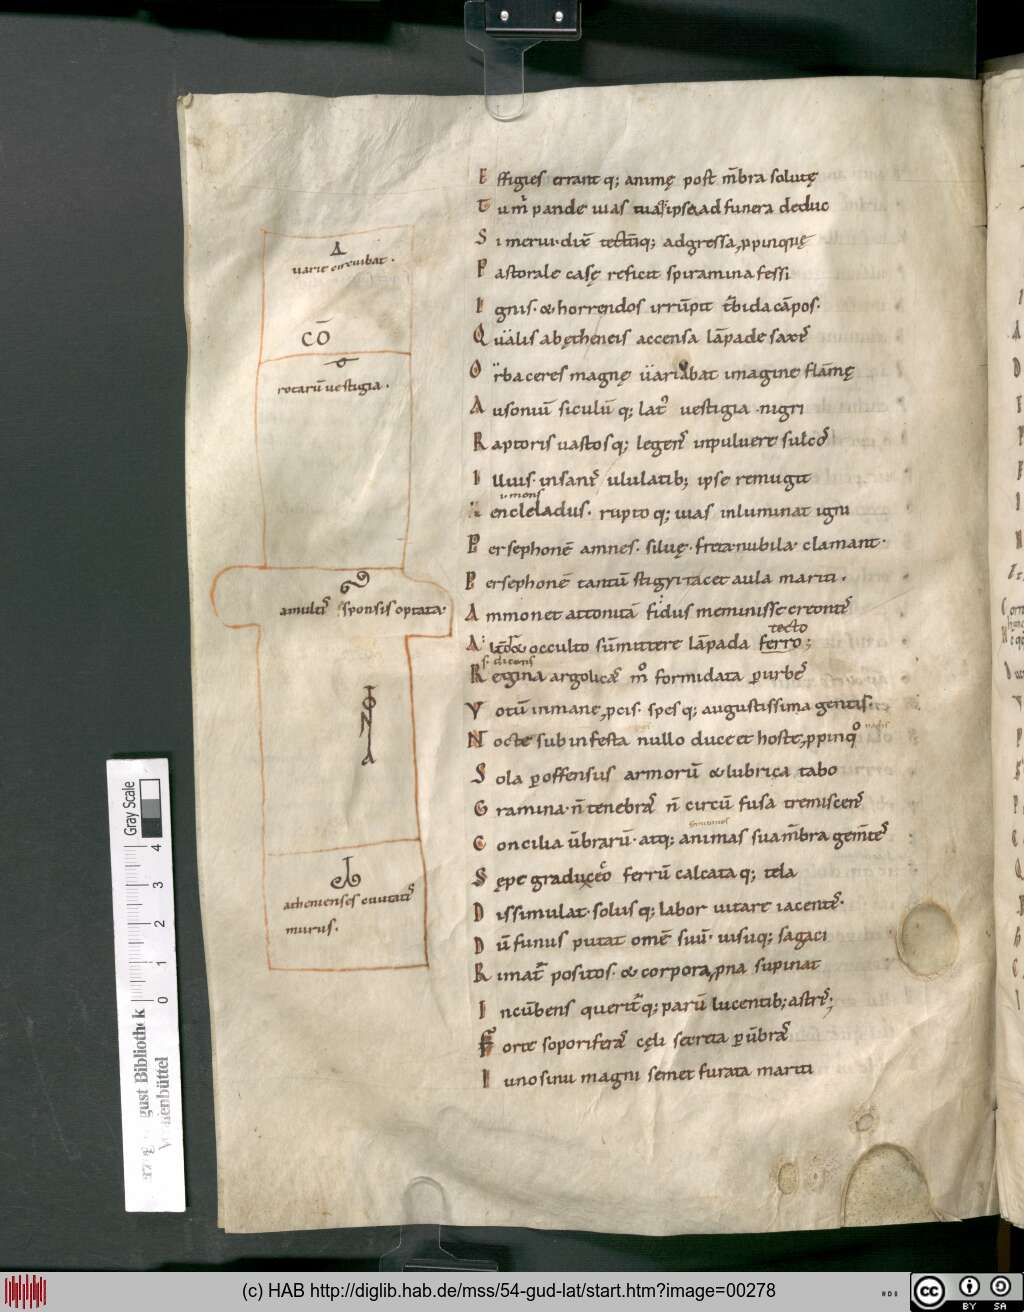 E ffigies errant q; animę post m̄bra solutę
T um̄ pande uias tuaq; ipsa ad funera deduc
S i merui· dix̄ tectūq; adgressa, ꝓpinquę
P astorale casę reficit spiramina fessi
I gnis· & horrendos irrūpit t̄bida cāpos·
Q ualis ab ętheneis accensa lāpade saxiſ
O rba ceres magnę uariabat imagine flāmę
A usoniū siculū q; lat᾽ uestigia nigri
R aptoris uastosq; legenſ inpuluere sulcoſ
I llius· insaniſ ululatib; ipse remugit
i· mons
A encleladus· rupto q; uias inluminat igni
P ersephonē amnes· siluę· freta· nubila· clamant·
P ersephonē tantū stigyi tacet aula mariti·
A mmonet attonitā fidus meminisse creontiſ
tecto
A lt̄o& occulto sūmittere lāpada ferro;
s· dicens
R egina argolicaſ m̊ formidata ꝑurbeſ
V otū inmane, ꝓcis· spes q; augustissima gentis·
N octe sub infesta nullo duce et hoste, ꝓpinq̊
S ola ꝑoffensus armorū & lubrica tabo
G ramina· n̄ tenebraſ n̄ circū fusa tremiscenſ
C oncilia ūbrarū· atq; animas sua m̄bra gem̄teſ
S ępe gradu cęco ferrū calcata q; tela
D issimulat· solus q; labor uitare iacenteſ·
D ū funus putat omē suū· uisuq; sagaci
R imat᾽ positos· & corpora, ꝓna supinat
I ncūbens querit᾽q; parū lucentib; astriſ;
F orte soporiferaſ cęli secreta ꝑūbraſ
I unosinu magni semet furata mariti
A
uarie circuibat·
CO
rotarū uestigia·
amultiſ sponsis optata·
atheniensis ciuitatiſ
murus·
Gray Scale
4
3
2
1
0
gust Bibliothek
(c) HAB http://diglib.hab.de/mss/54-gud-lat/start.htm?image=00278
cc
BY SA